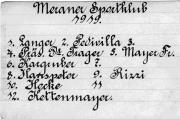 Meraner Sportklub
1919.
1. Langer 2. Pedivilla 3.
4. Präs. Dr. Trager 5. Mayer Fr.
6. Kargruber 7.
8. Hanspeter 9. Rizzi
10. Flocke 11.
12. Kettenmayer